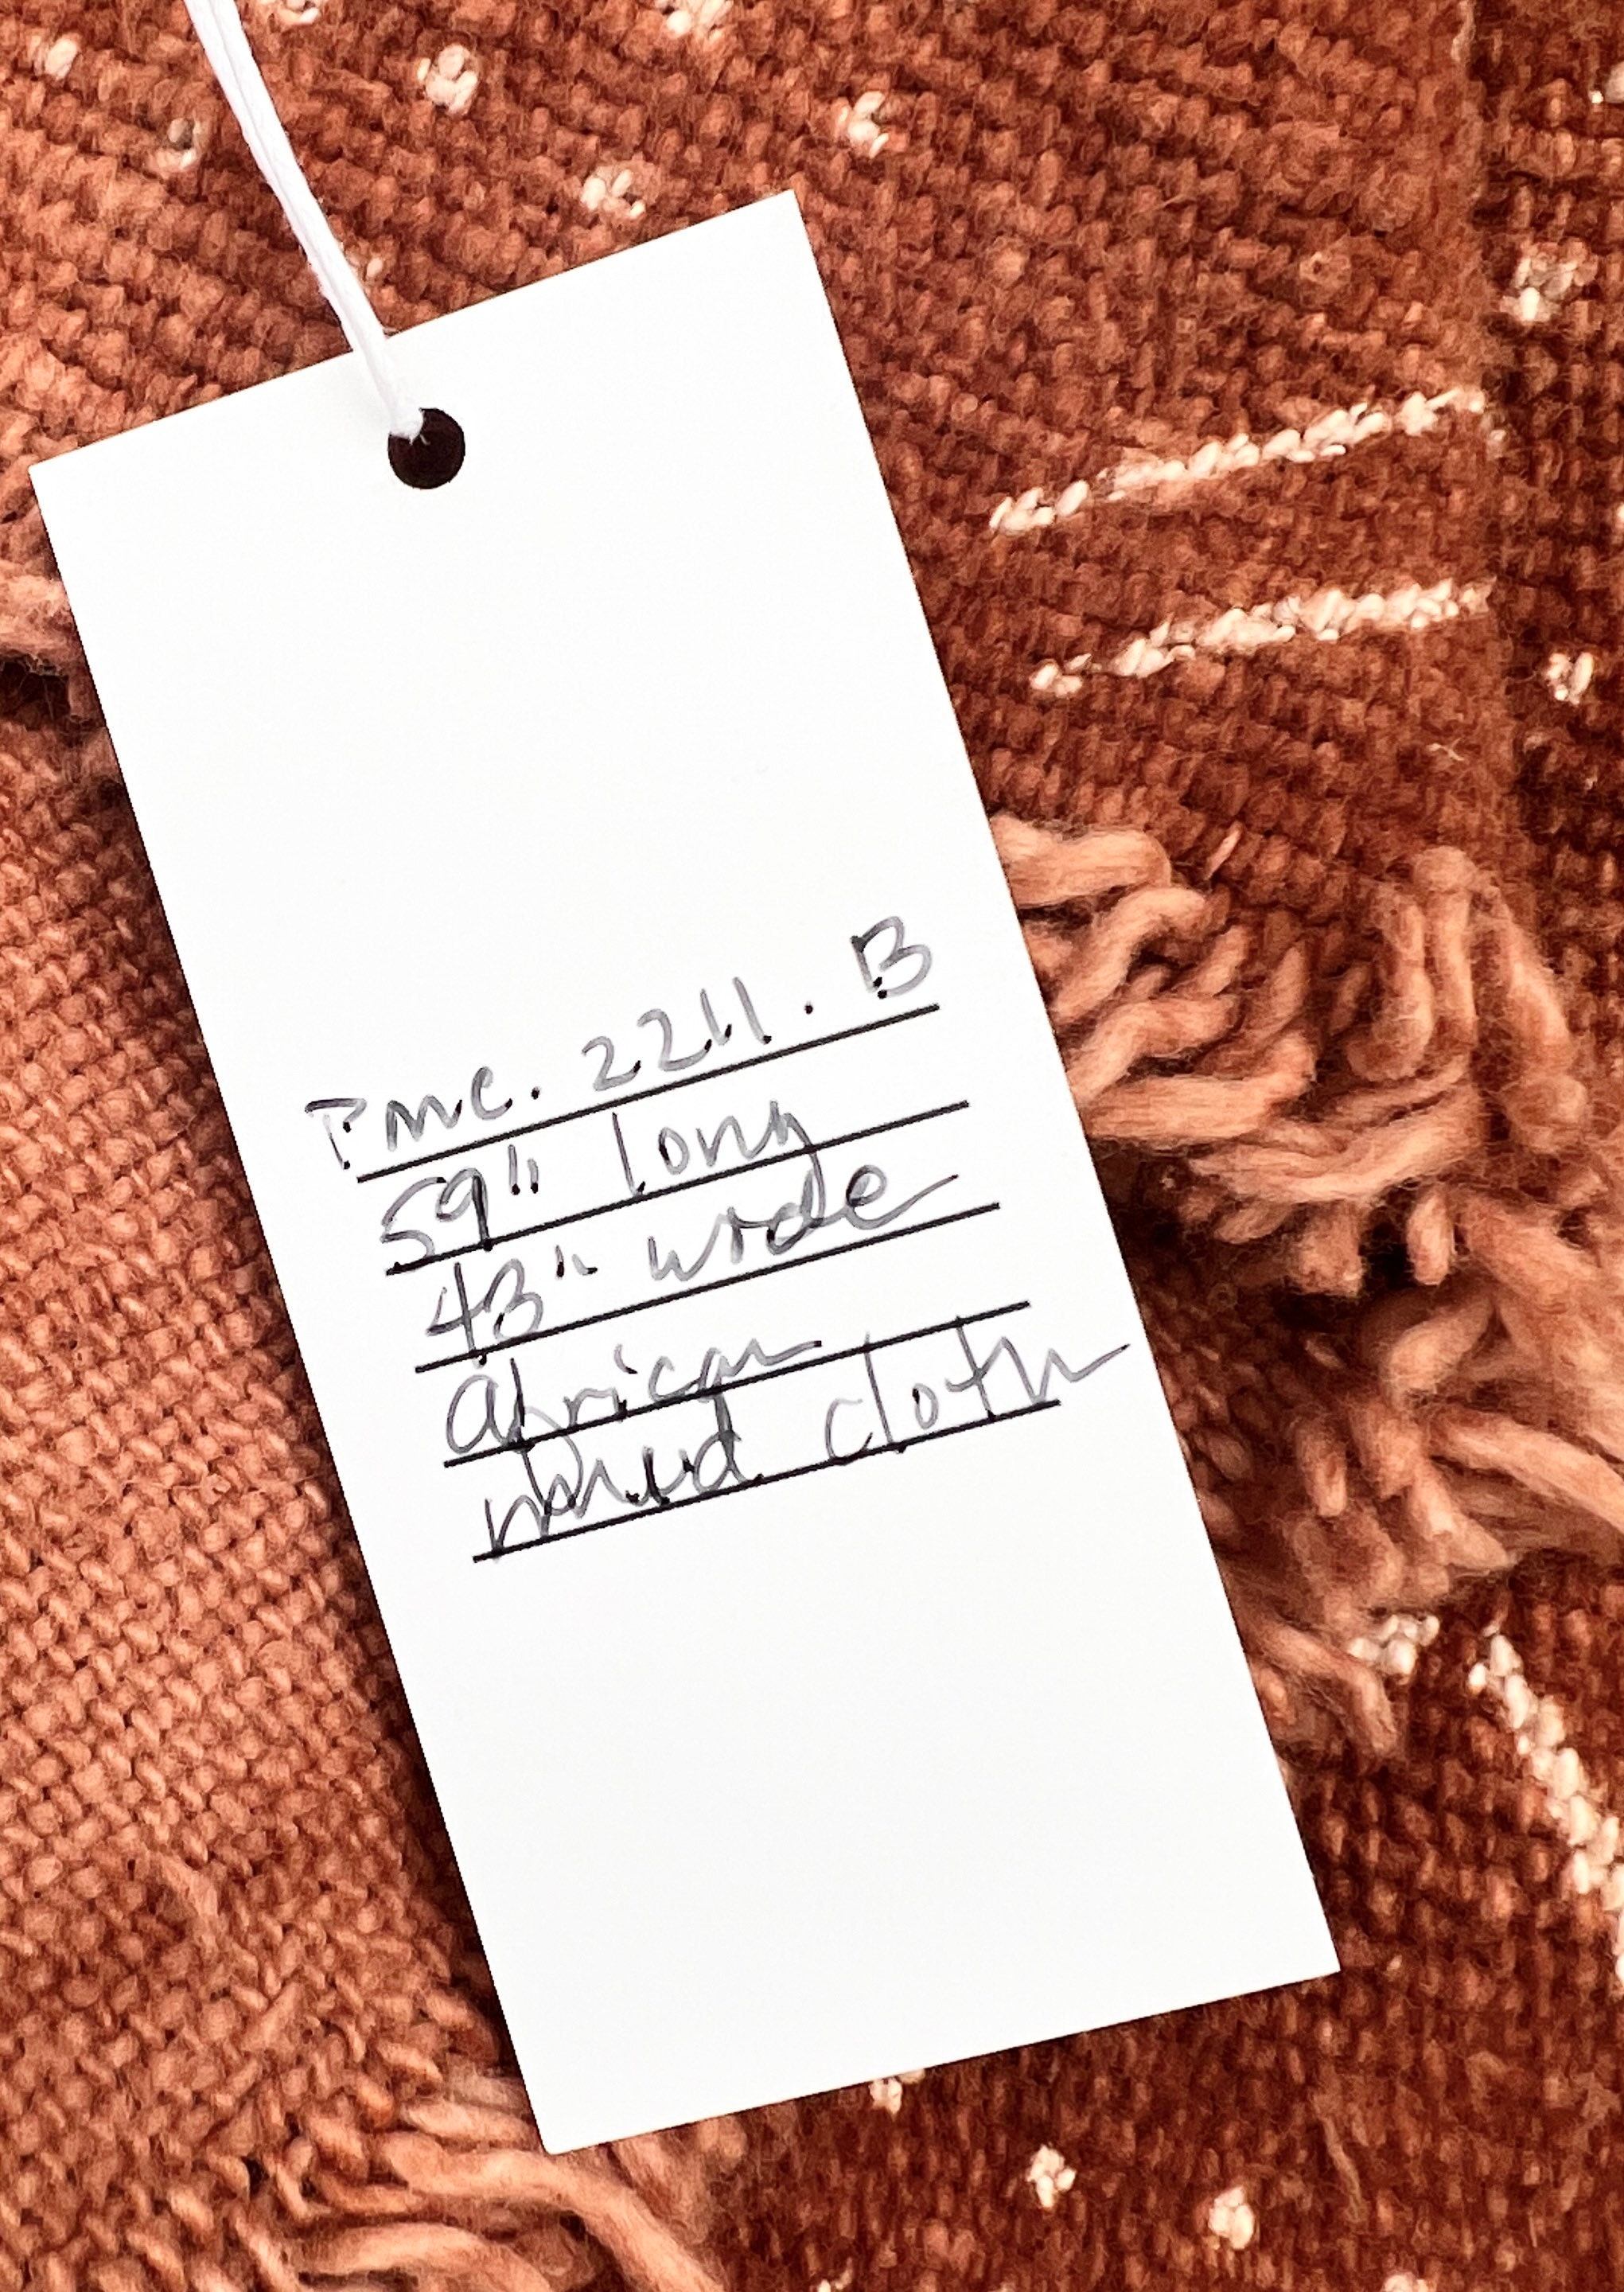 Pmc. 2211. B
59" long
43" wide
african
mud cloth